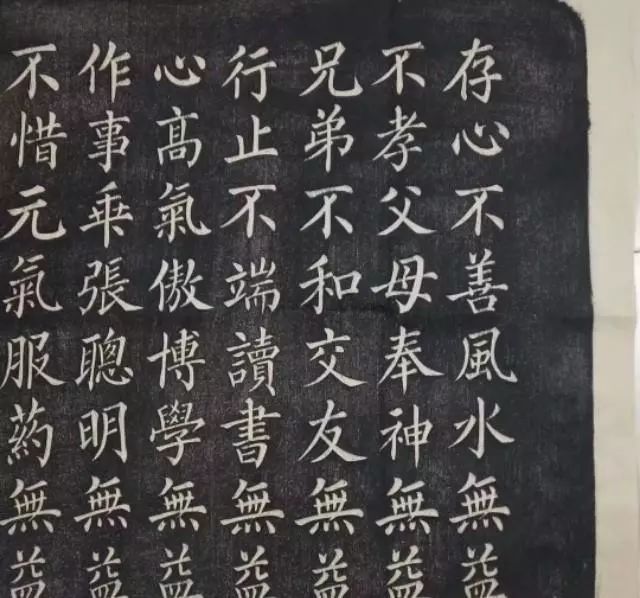 存心不善風水無益
不孝父母奉神無益
兄弟不和交友無益
行止不端讀書無益
心高氣傲博學無益
作事乗張聰明無益
不惜元氣服药無益